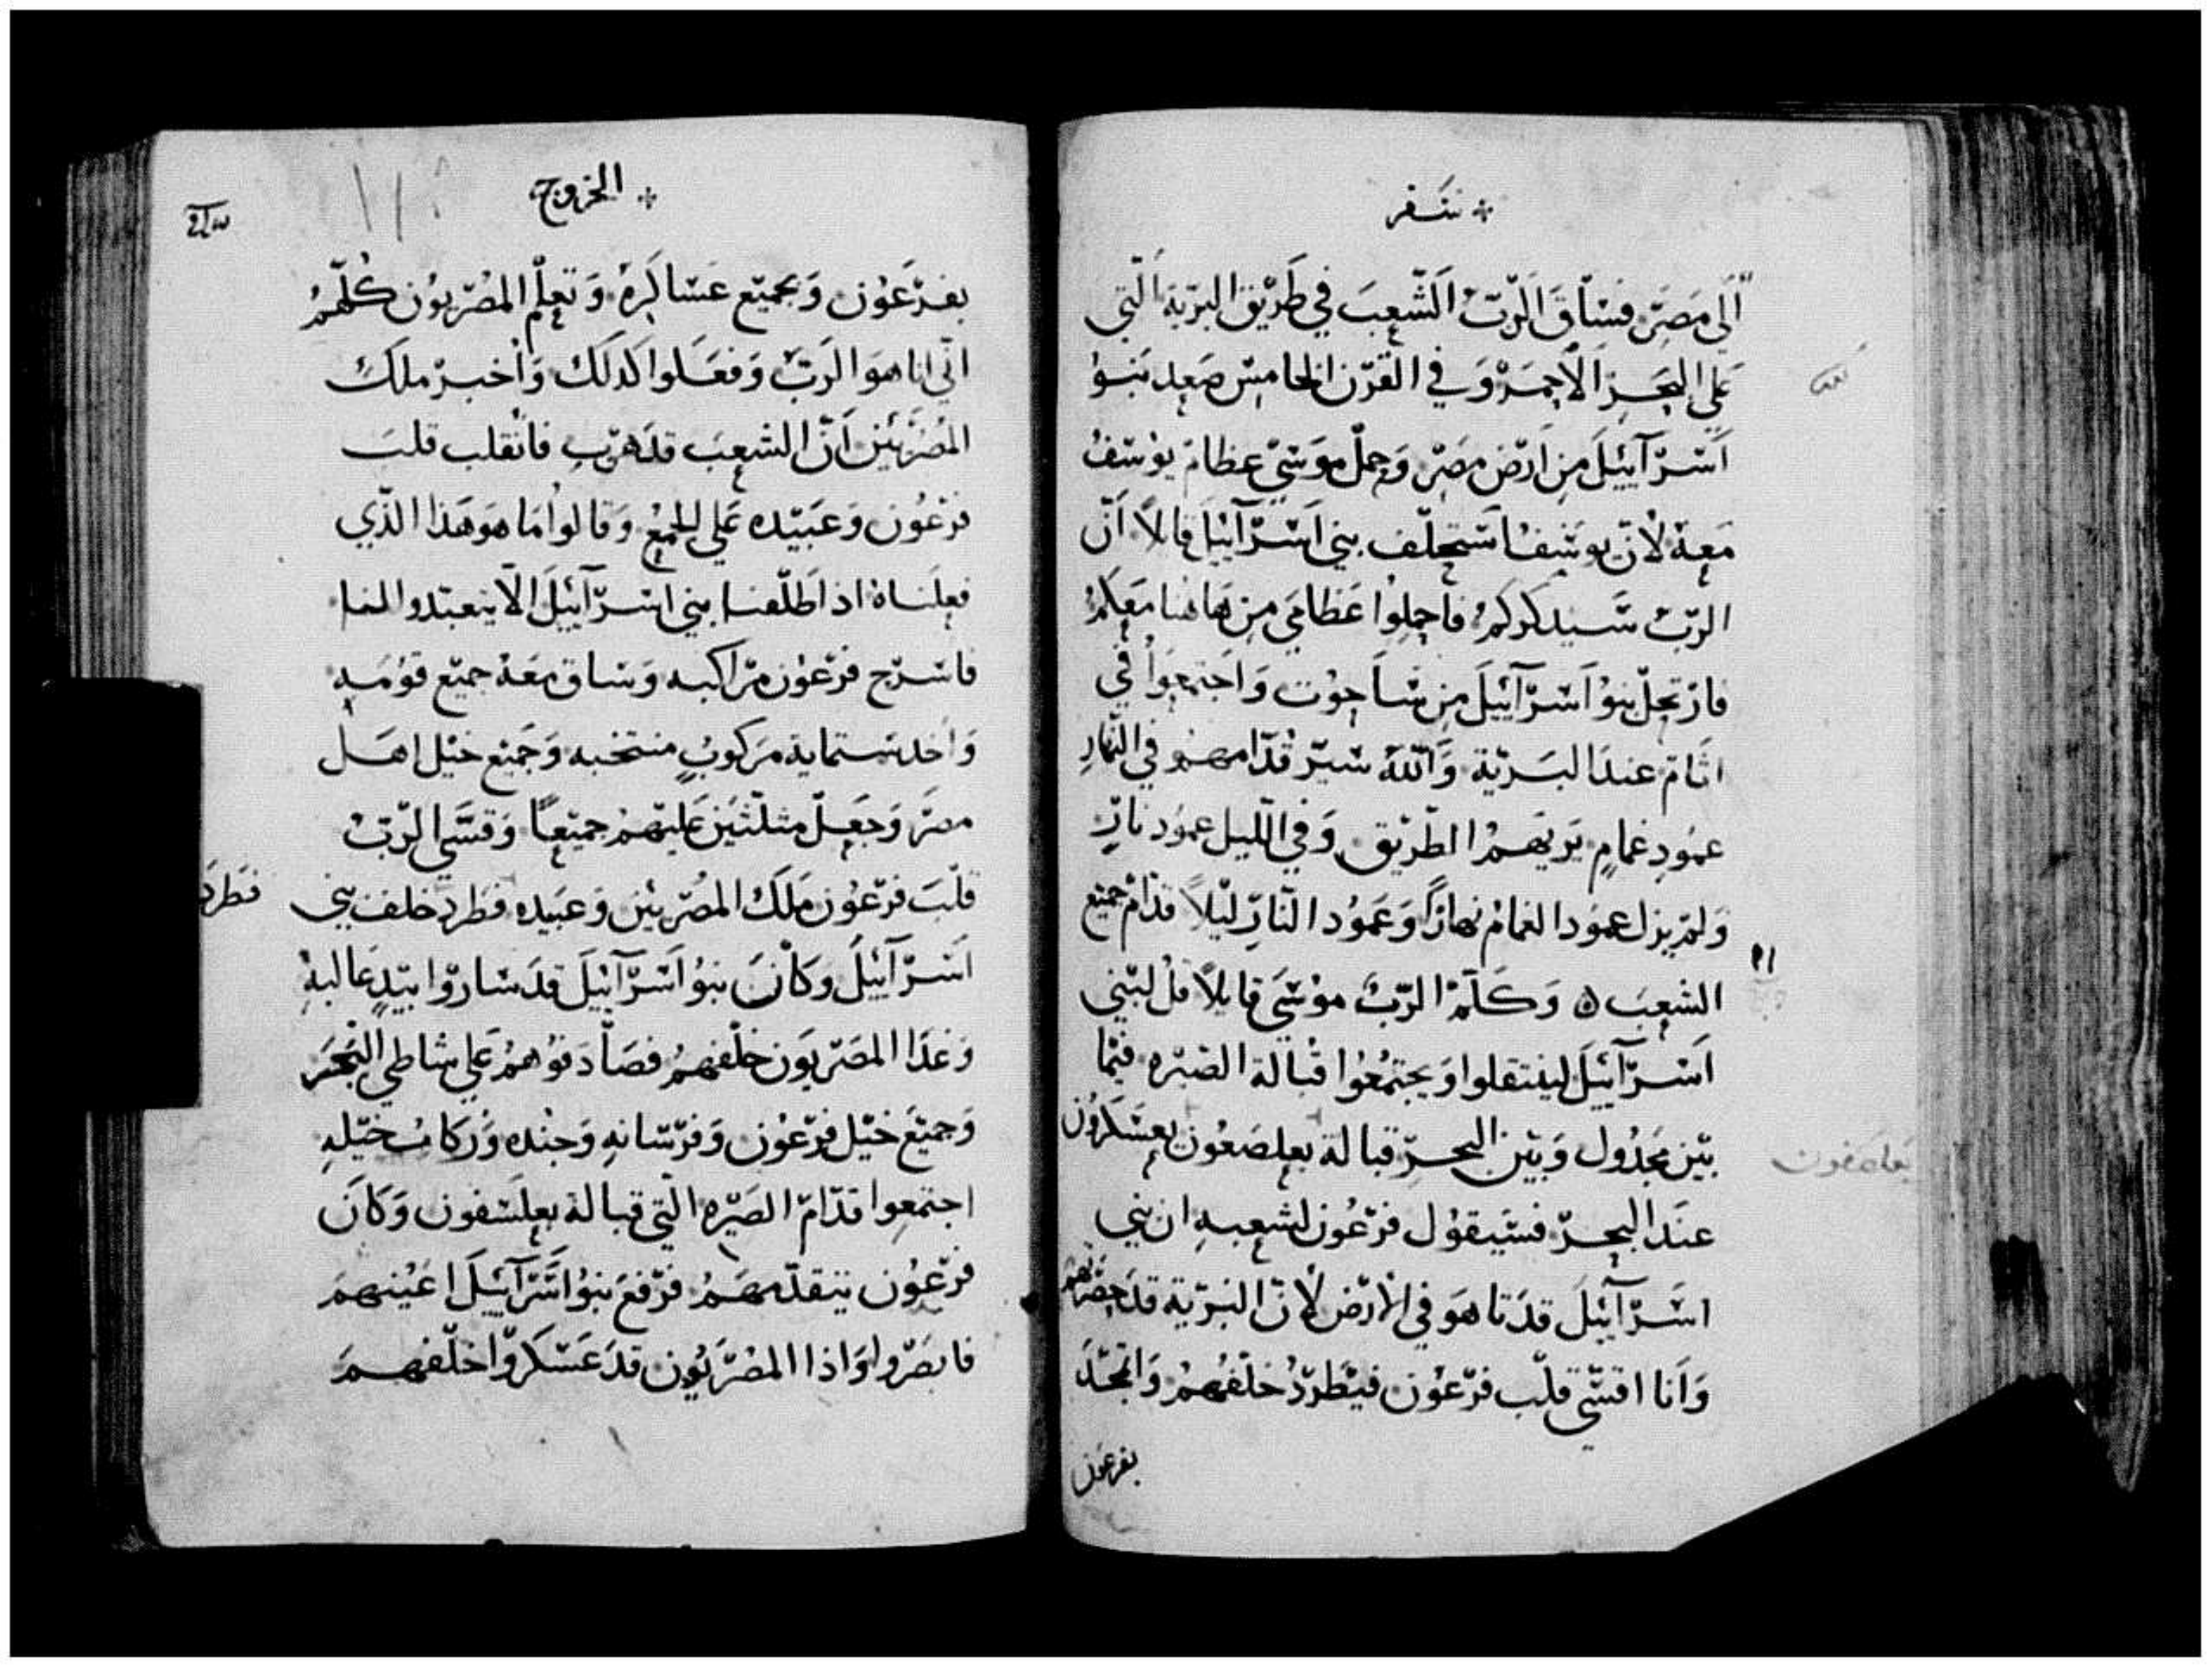 سفر
الى مصر فساق الرب الشعب في طريق البرية التي
على البحر الاحمر وفي القرن الخامس صعد بنوا
اسرآييل من ارض مصر وحمل موسى عظام يوسف
معه لان يوسف استحلف بني اسرآييل قايلاً ان
الرب سيدكركم فاحملوا عظامي من هاهنا معكم
فارتحل بنوا اسرآييل من ساحوت واجتمعوا في
اثام عند البرية والله سير قدامهم في النهار
عمود غمام يريهم الطريق وفي الليل عمود نار
ولم يزل عمود الغمام نهاراً وعمود النار ليلاً قدام جميع
الشعب ٥ وكلم الرب موسى قايلاً قل لبني
اسرآييل لينتقلوا ويجتمعوا قبالة الصيره فيما
بين مجدول وبين البحر قبالة بعلصفون يعسكرون
بعلصفون
عند البحر فسيقول فرعون لشعبه ان بني
اسرآييل قد تاهو في الارض لان البرية قد حصرتهم
وانا اقسي قلب فرعون فيطرد خلفهم واتمجد
بفرعون
الخروج
بفرعون وبجميع عساكره وتعلم المصريون كلهم
اني انا هو الرب وفعلوا كدلك واخبر ملك
المصريين ان الشعب قد هرب فانقلب قلب
فرعون وعبيده على الجمع وقالوا ما هو هذا الذي
فعلناه اذ اطلقنا بني اسرآييل الا يتعبدوا لنا
فاسرج فرعون مراكبه وساق معه جميع قومه
واخد ستماية مركوب منتخبه وجميع خيل اهل
مصر وجعل مثلثين عليهم جميعاً وقسى الرب
قلب فرعون ملك المصريين وعبيده فطرد خلف بني
فطرد
اسرآييل وكان بنوا اسرآييل قد ساروا بيد عاليه
وغدا المصريون خلفهم فصادفوهم على شاطي البحر
وجميع خيل فرعون وفرسانه وجنده وركاب خيله
اجتمعوا قدام الصيره التي قبالة بعلسفون وكان
فرعون يتقدمهم فرفع بنوا اسرآييل اعينهم
فابصروا واذا المصريون قد عسكروا خلفهم